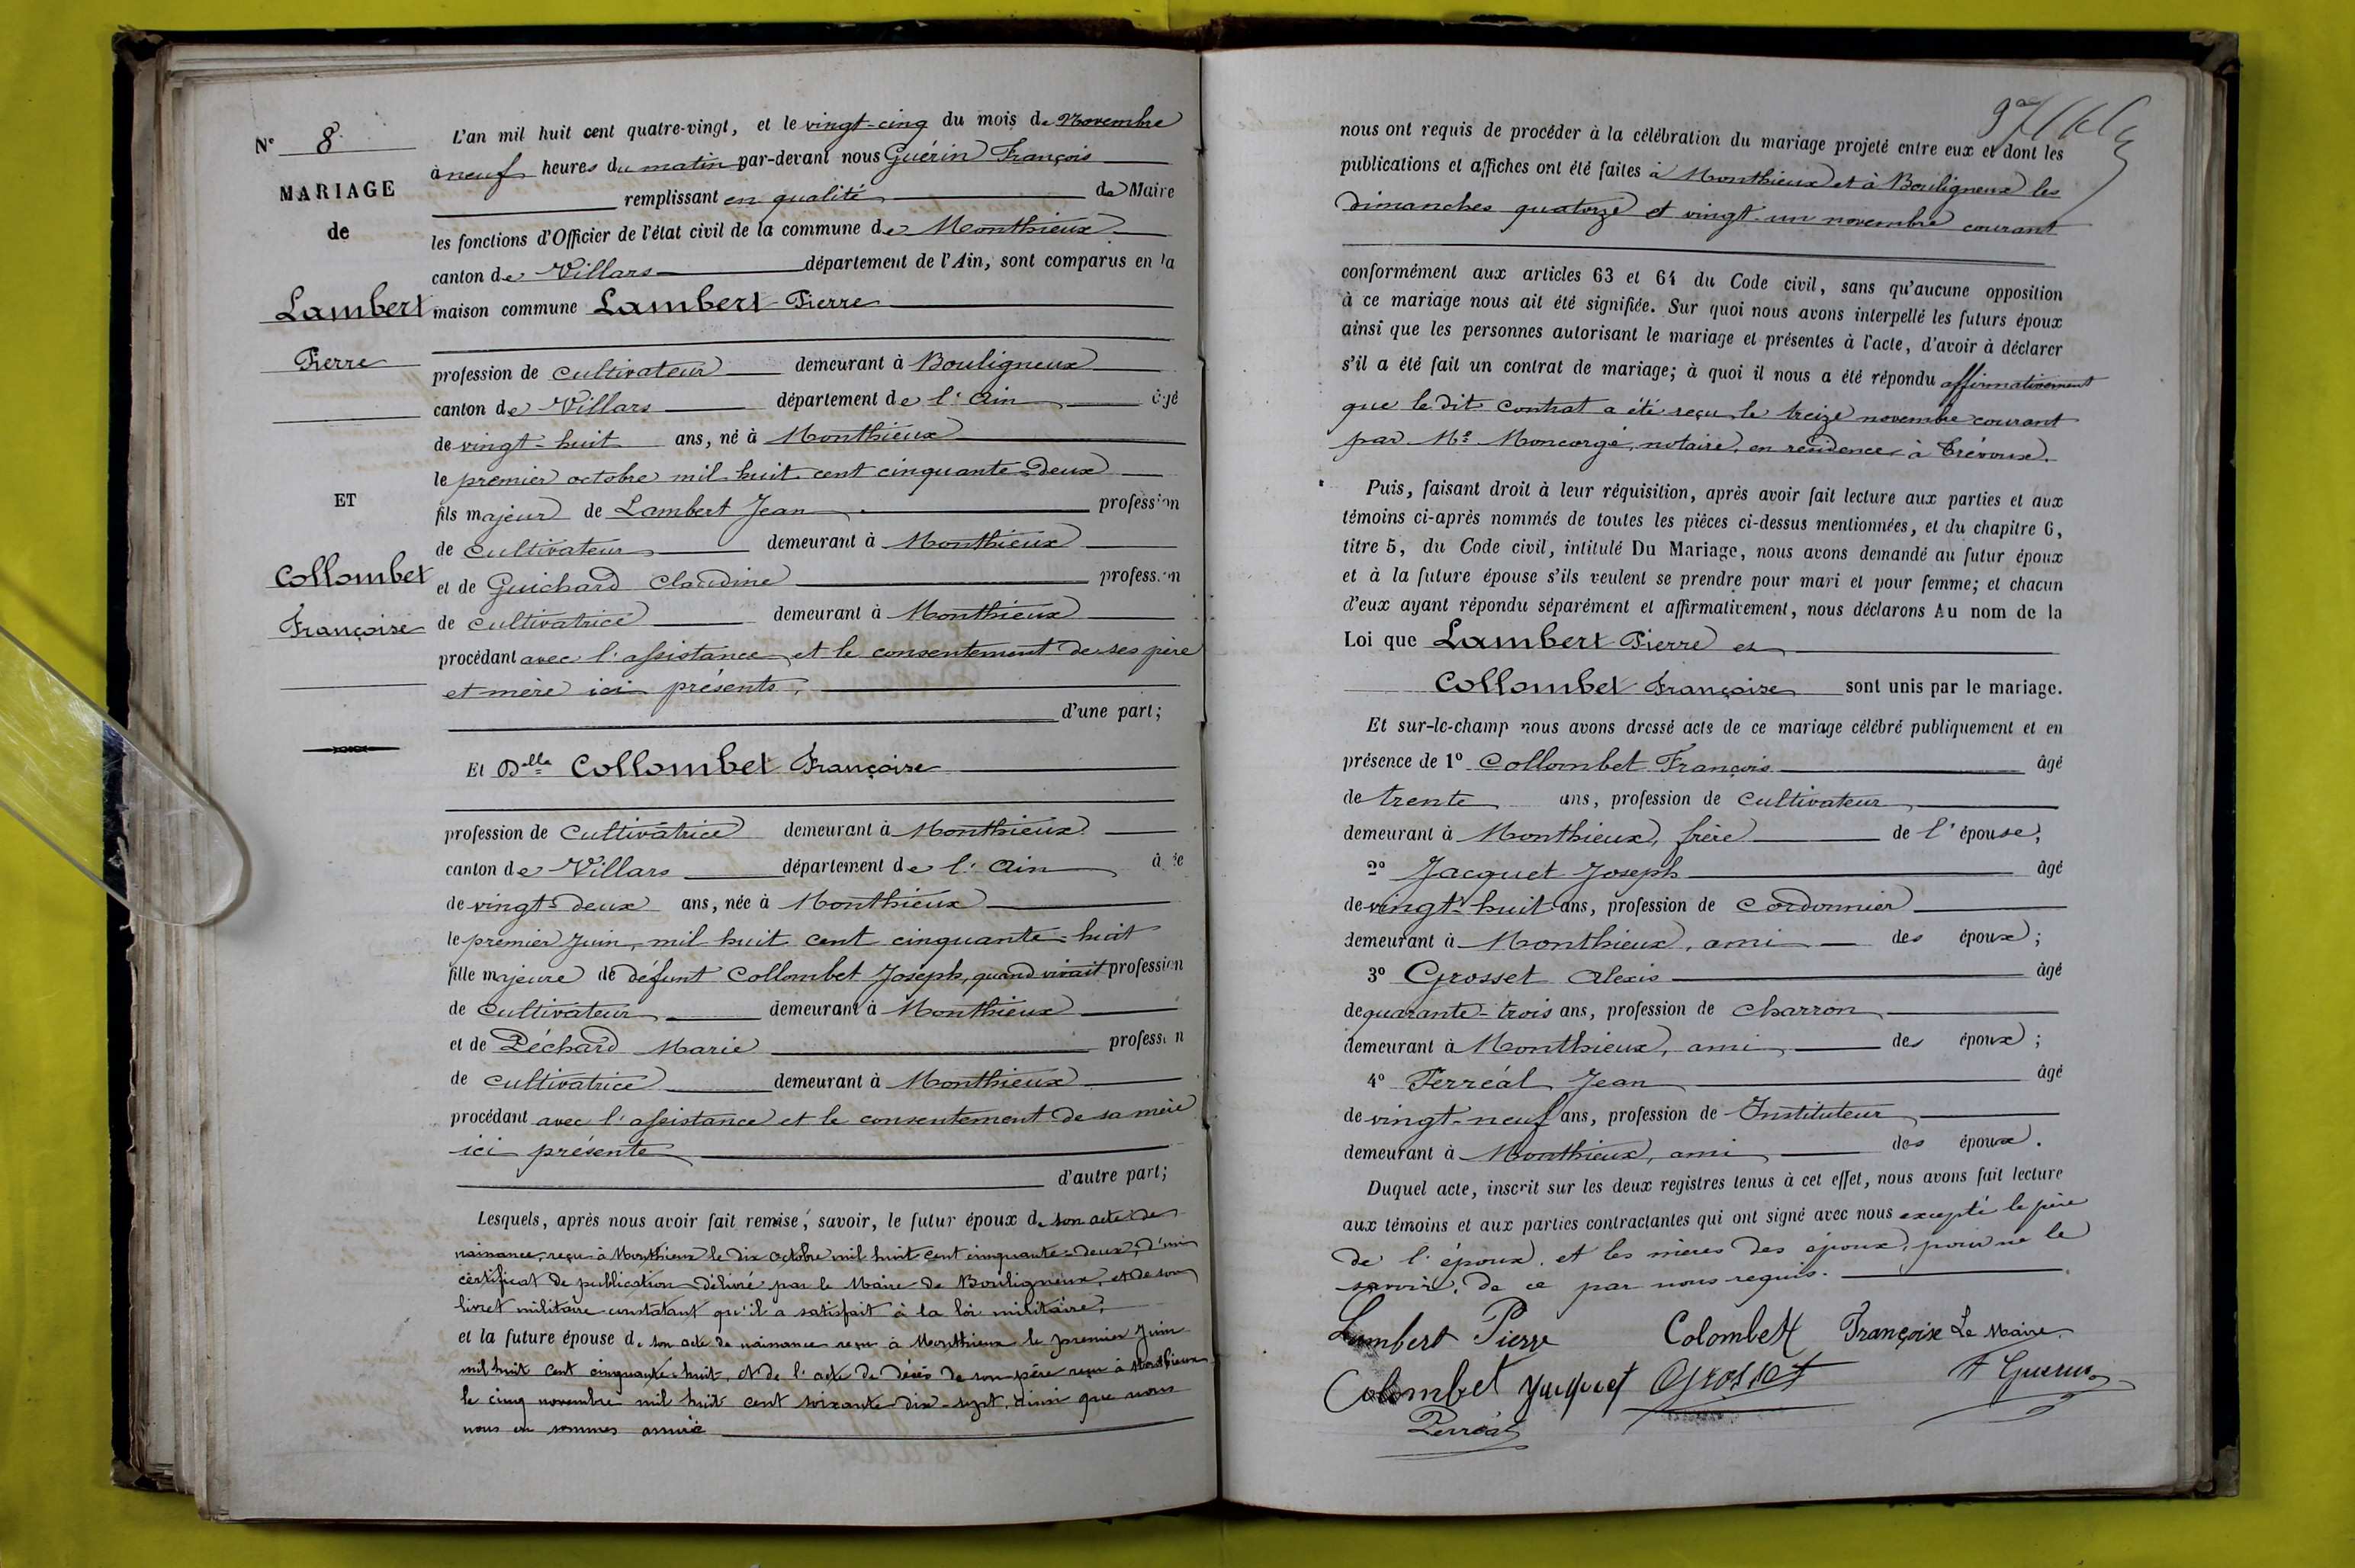 N° 8
MARIAGE
de
Lambert
Pierre
ET
Collombet
Françoise
L'an mil huit cent quatre-vingt, et le vingt-cinq du mois de Novembre
à neuf heures du matin par-devant nous Guérin François
remplissant en qualité de Maire
les fonctions d'Officier de l'état civil de la commune de Monthieux
canton de Villars département de l'Ain, sont comparus en la
maison commune Lambert Pierre
profession de cultivateur demeurant à Bouligneux
canton de Villars département de l'Ain âgé
de vingt-huit ans, né à Monthieux
le premier octobre mil huit cent cinquante-deux
fils majeur de Lambert Jean profession
de cultivateur demeurant à Monthieux
et de Guichard Claudine profession
de cultivatrice demeurant à Monthieux
procédant avec l'assistance et le consentement de ses père
et mère ici présents,
d'une part;
Et Delle Collombet Françoise
profession de cultivatrice demeurant à Monthieux
canton de Villars département de l'Ain âgée
de vingt-deux ans, née à Monthieux
le premier Juin, mil huit cent cinquante-huit
fille majeure de défunt Collombet Joseph, quand vivait profession
de cultivateur demeurant à Monthieux
et de Péchard Marie profession
de cultivatrice demeurant à Monthieux
procédant avec l'assistance et le consentement de sa mère
ici présente
d'autre part;
Lesquels, après nous avoir fait remise, savoir, le futur époux de son acte de
naissance, reçu à Monthieux le dix octobre mil huit cent cinquante-deux, d'un
certificat de publication délivré par le Maire de Bouligneux, et de son
livret militaire constatant qu'il a satisfait à la loi militaire;
et la future épouse de son acte de naissance reçu à Monthieux le premier Juin
mil huit cent cinquante-huit, et de l'acte de décès de son père reçu à Monthieux
le cinq novembre mil huit cent soixante-dix-sept, ainsi que nous
nous en sommes assuré
97
nous ont requis de procéder à la célébration du mariage projeté entre eux et dont les
publications et affiches ont été faites à Monthieux et à Bouligneux les
dimanches quatorze et vingt-un novembre courant
conformément aux articles 63 et 64 du Code civil, sans qu'aucune opposition
à ce mariage nous ait été signifiée. Sur quoi nous avons interpellé les futurs époux
ainsi que les personnes autorisant le mariage et présentes à l'acte, d'avoir à déclarer
s'il a été fait un contrat de mariage; à quoi il nous a été répondu affirmativement
que le dit contrat a été reçu le treize novembre courant
par Me Moncorgé, notaire, en résidence à Trévoux.
Puis, faisant droit à leur réquisition, après avoir fait lecture aux parties et aux
témoins ci-après nommés de toutes les pièces ci-dessus mentionnées, et du chapitre 6,
titre 5, du Code civil, intitulé Du Mariage, nous avons demandé au futur époux
et à la future épouse s'ils veulent se prendre pour mari et pour femme; et chacun
d'eux ayant répondu séparément et affirmativement, nous déclarons Au nom de la
Loi que Lambert Pierre et
Collombet Françoise sont unis par le mariage.
Et sur-le-champ nous avons dressé acte de ce mariage célébré publiquement et en
présence de 1° Collombet François âgé
de trente ans, profession de cultivateur
demeurant à Monthieux, frère de l'épouse;
2° Jacquet Joseph âgé
de vingt-huit ans, profession de Cordonnier
demeurant à Monthieux, ami des époux;
3° Grosset Alexis âgé
de quarante-trois ans, profession de charron
demeurant à Monthieux, ami des époux;
4° Perréal Jean âgé
de vingt-neuf ans, profession de Instituteur
demeurant à Monthieux, ami des époux.
Duquel acte, inscrit sur les deux registres tenus à cet effet, nous avons fait lecture
aux témoins et aux parties contractantes qui ont signé avec nous excepté le père
de l'époux, et les mères des époux, pour ne le
savoir, de ce par nous requis.
Lambert Pierre Colombet Françoise Le Maire.
Colombet Jacquet Grosset F Guérin
Perréal